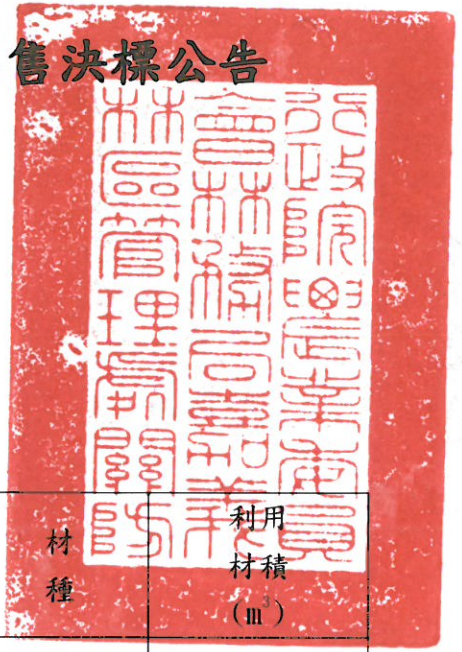 售決標公告
行政院農業委員
會林務局嘉義
林區管理處關防
材種
利用
材積
(m³)